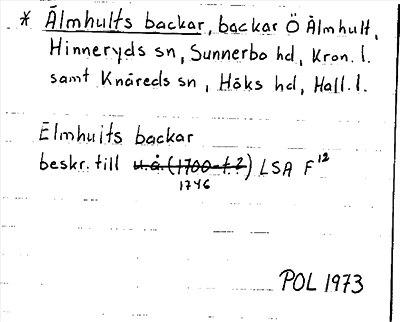 * Älmhults backar, backar Ö Älmhult,
Hinneryds sn, Sunnerbo hd, Kron. l.
samt Knäreds sn, Höks hd, Hall. l.
Elmhults backar
beskr. till u.å. (1700-t.?) LSA F 12
1746
POL 1973